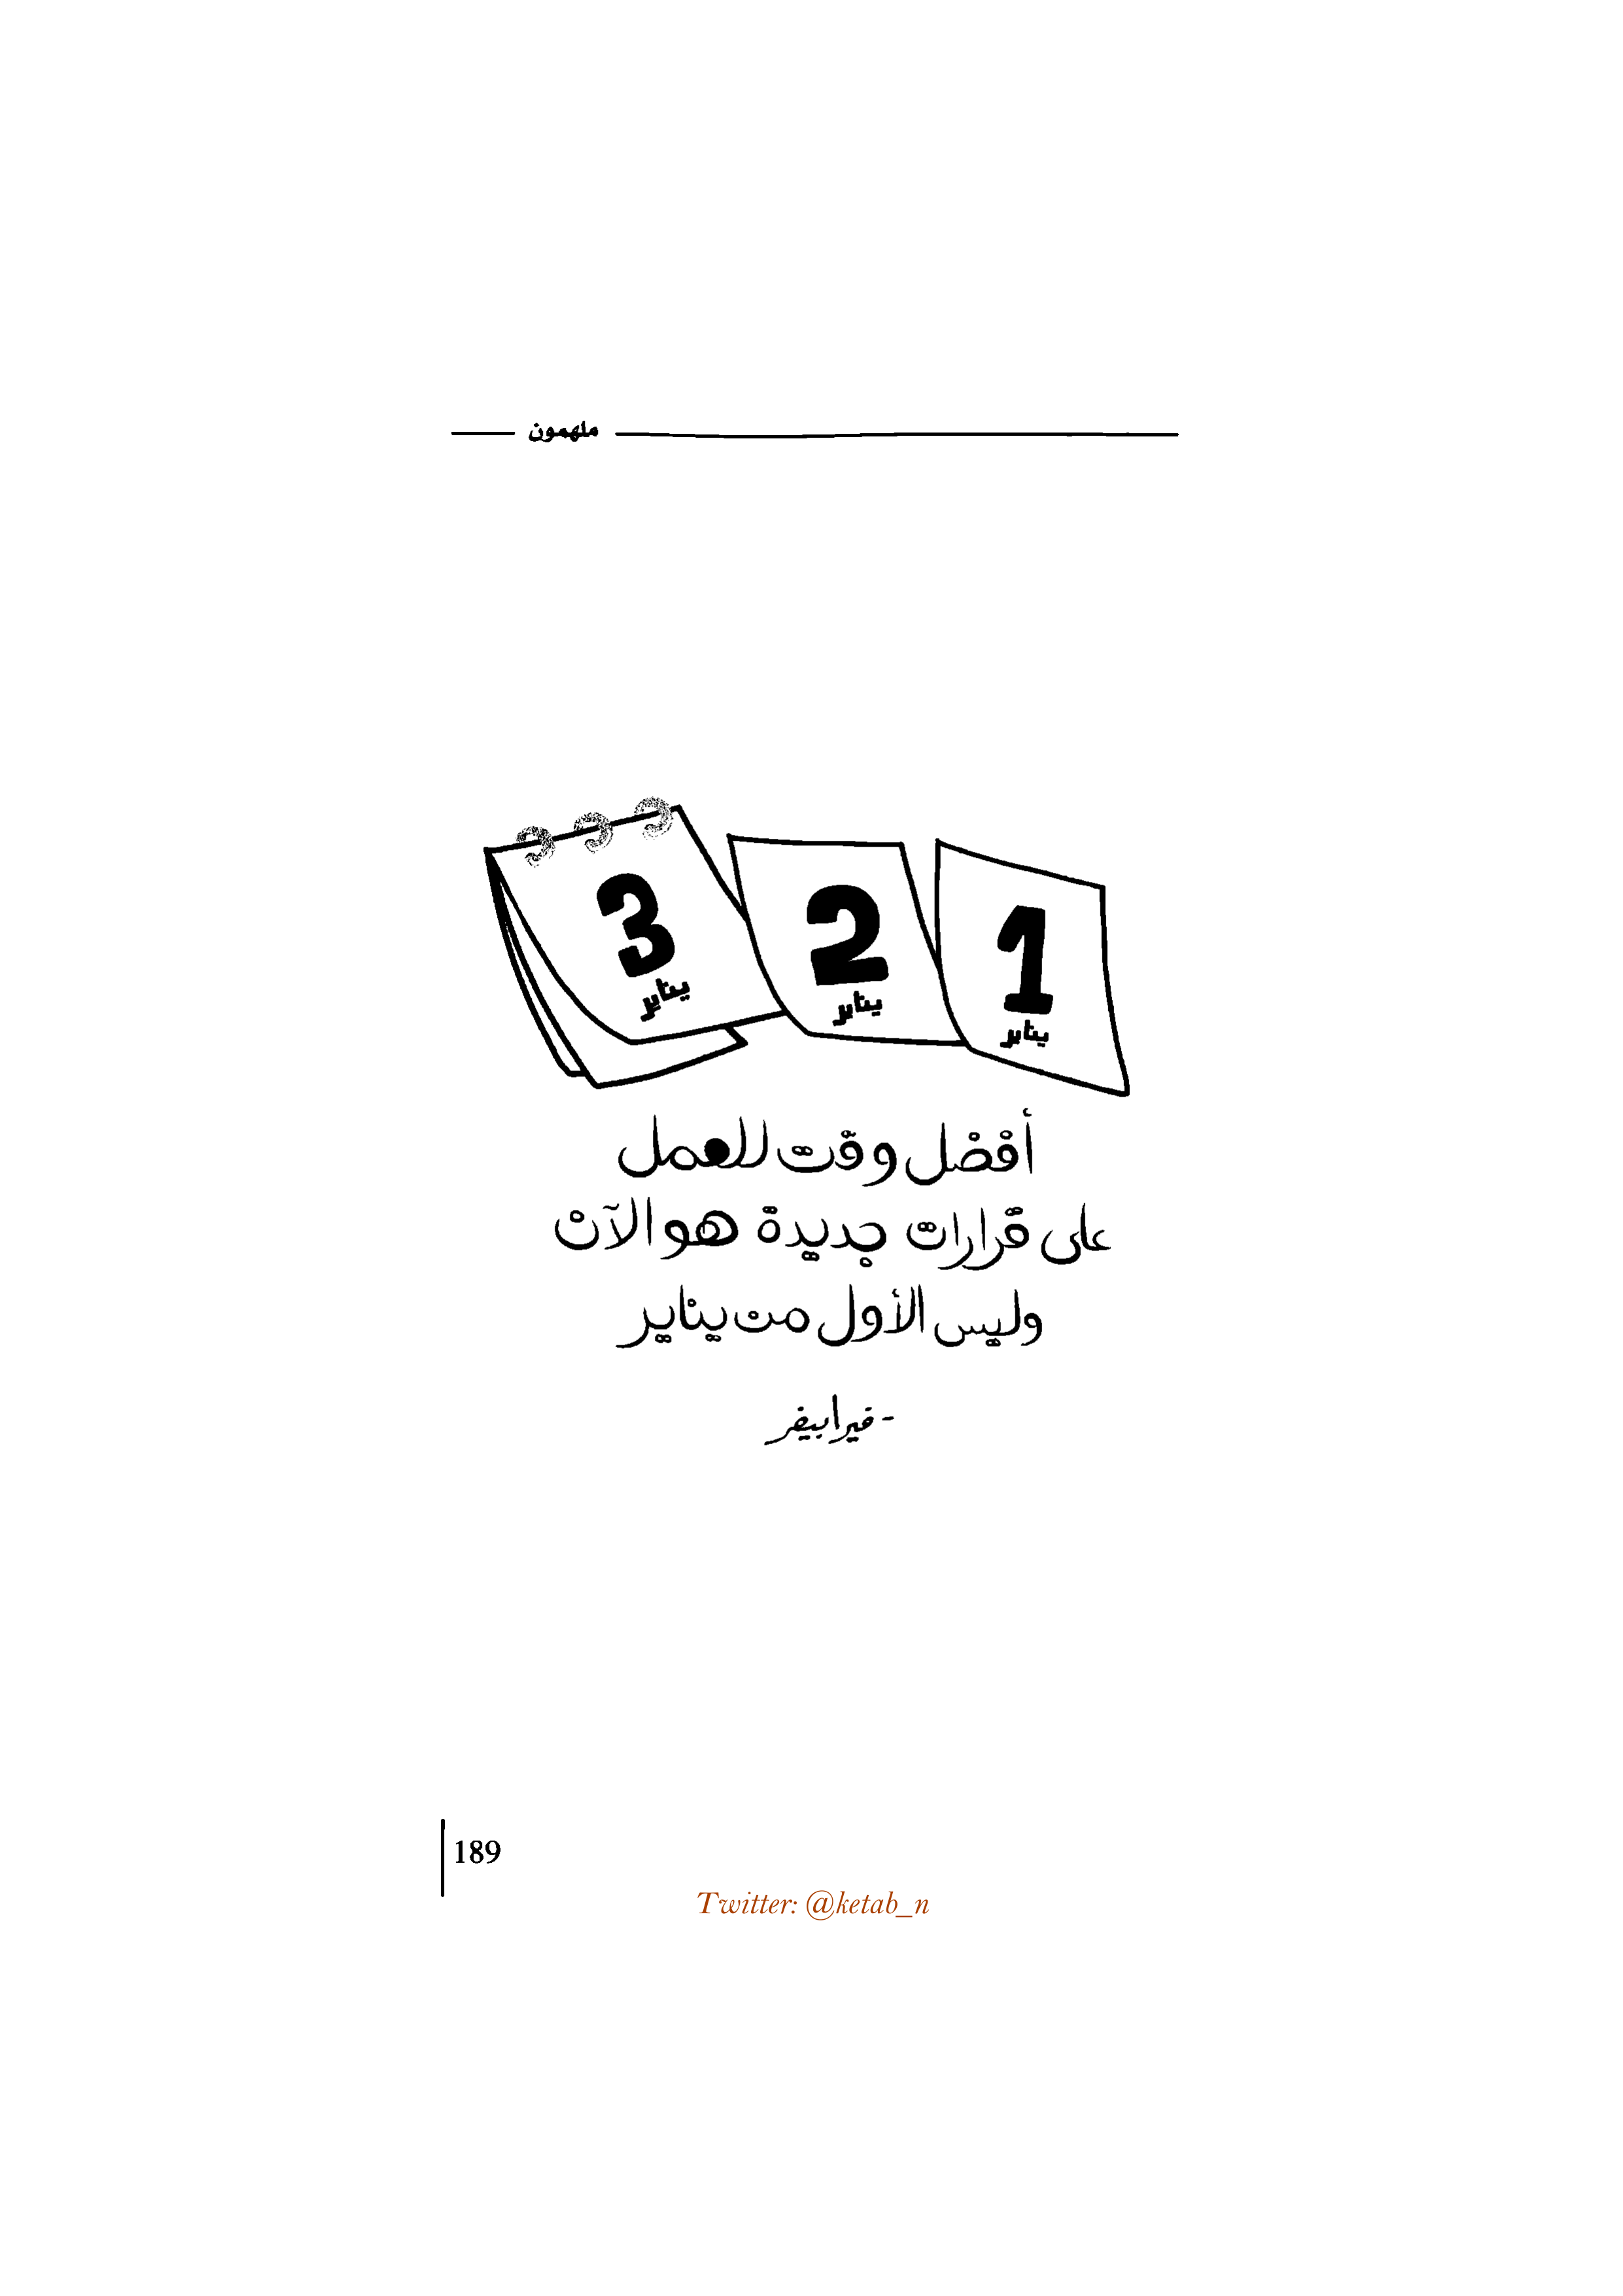 ملهمون
1
يناير
2
يناير
3
يناير
أفضل وقت للعمل
على قرارات جديدة هو الآن
وليس الأول من يناير
- فيرا بيفر
189
Twitter: @ketab_n